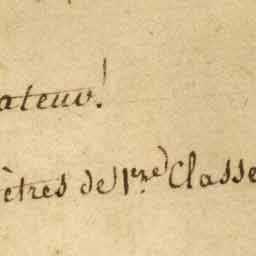 ateur!
ètres de 1ere Classe